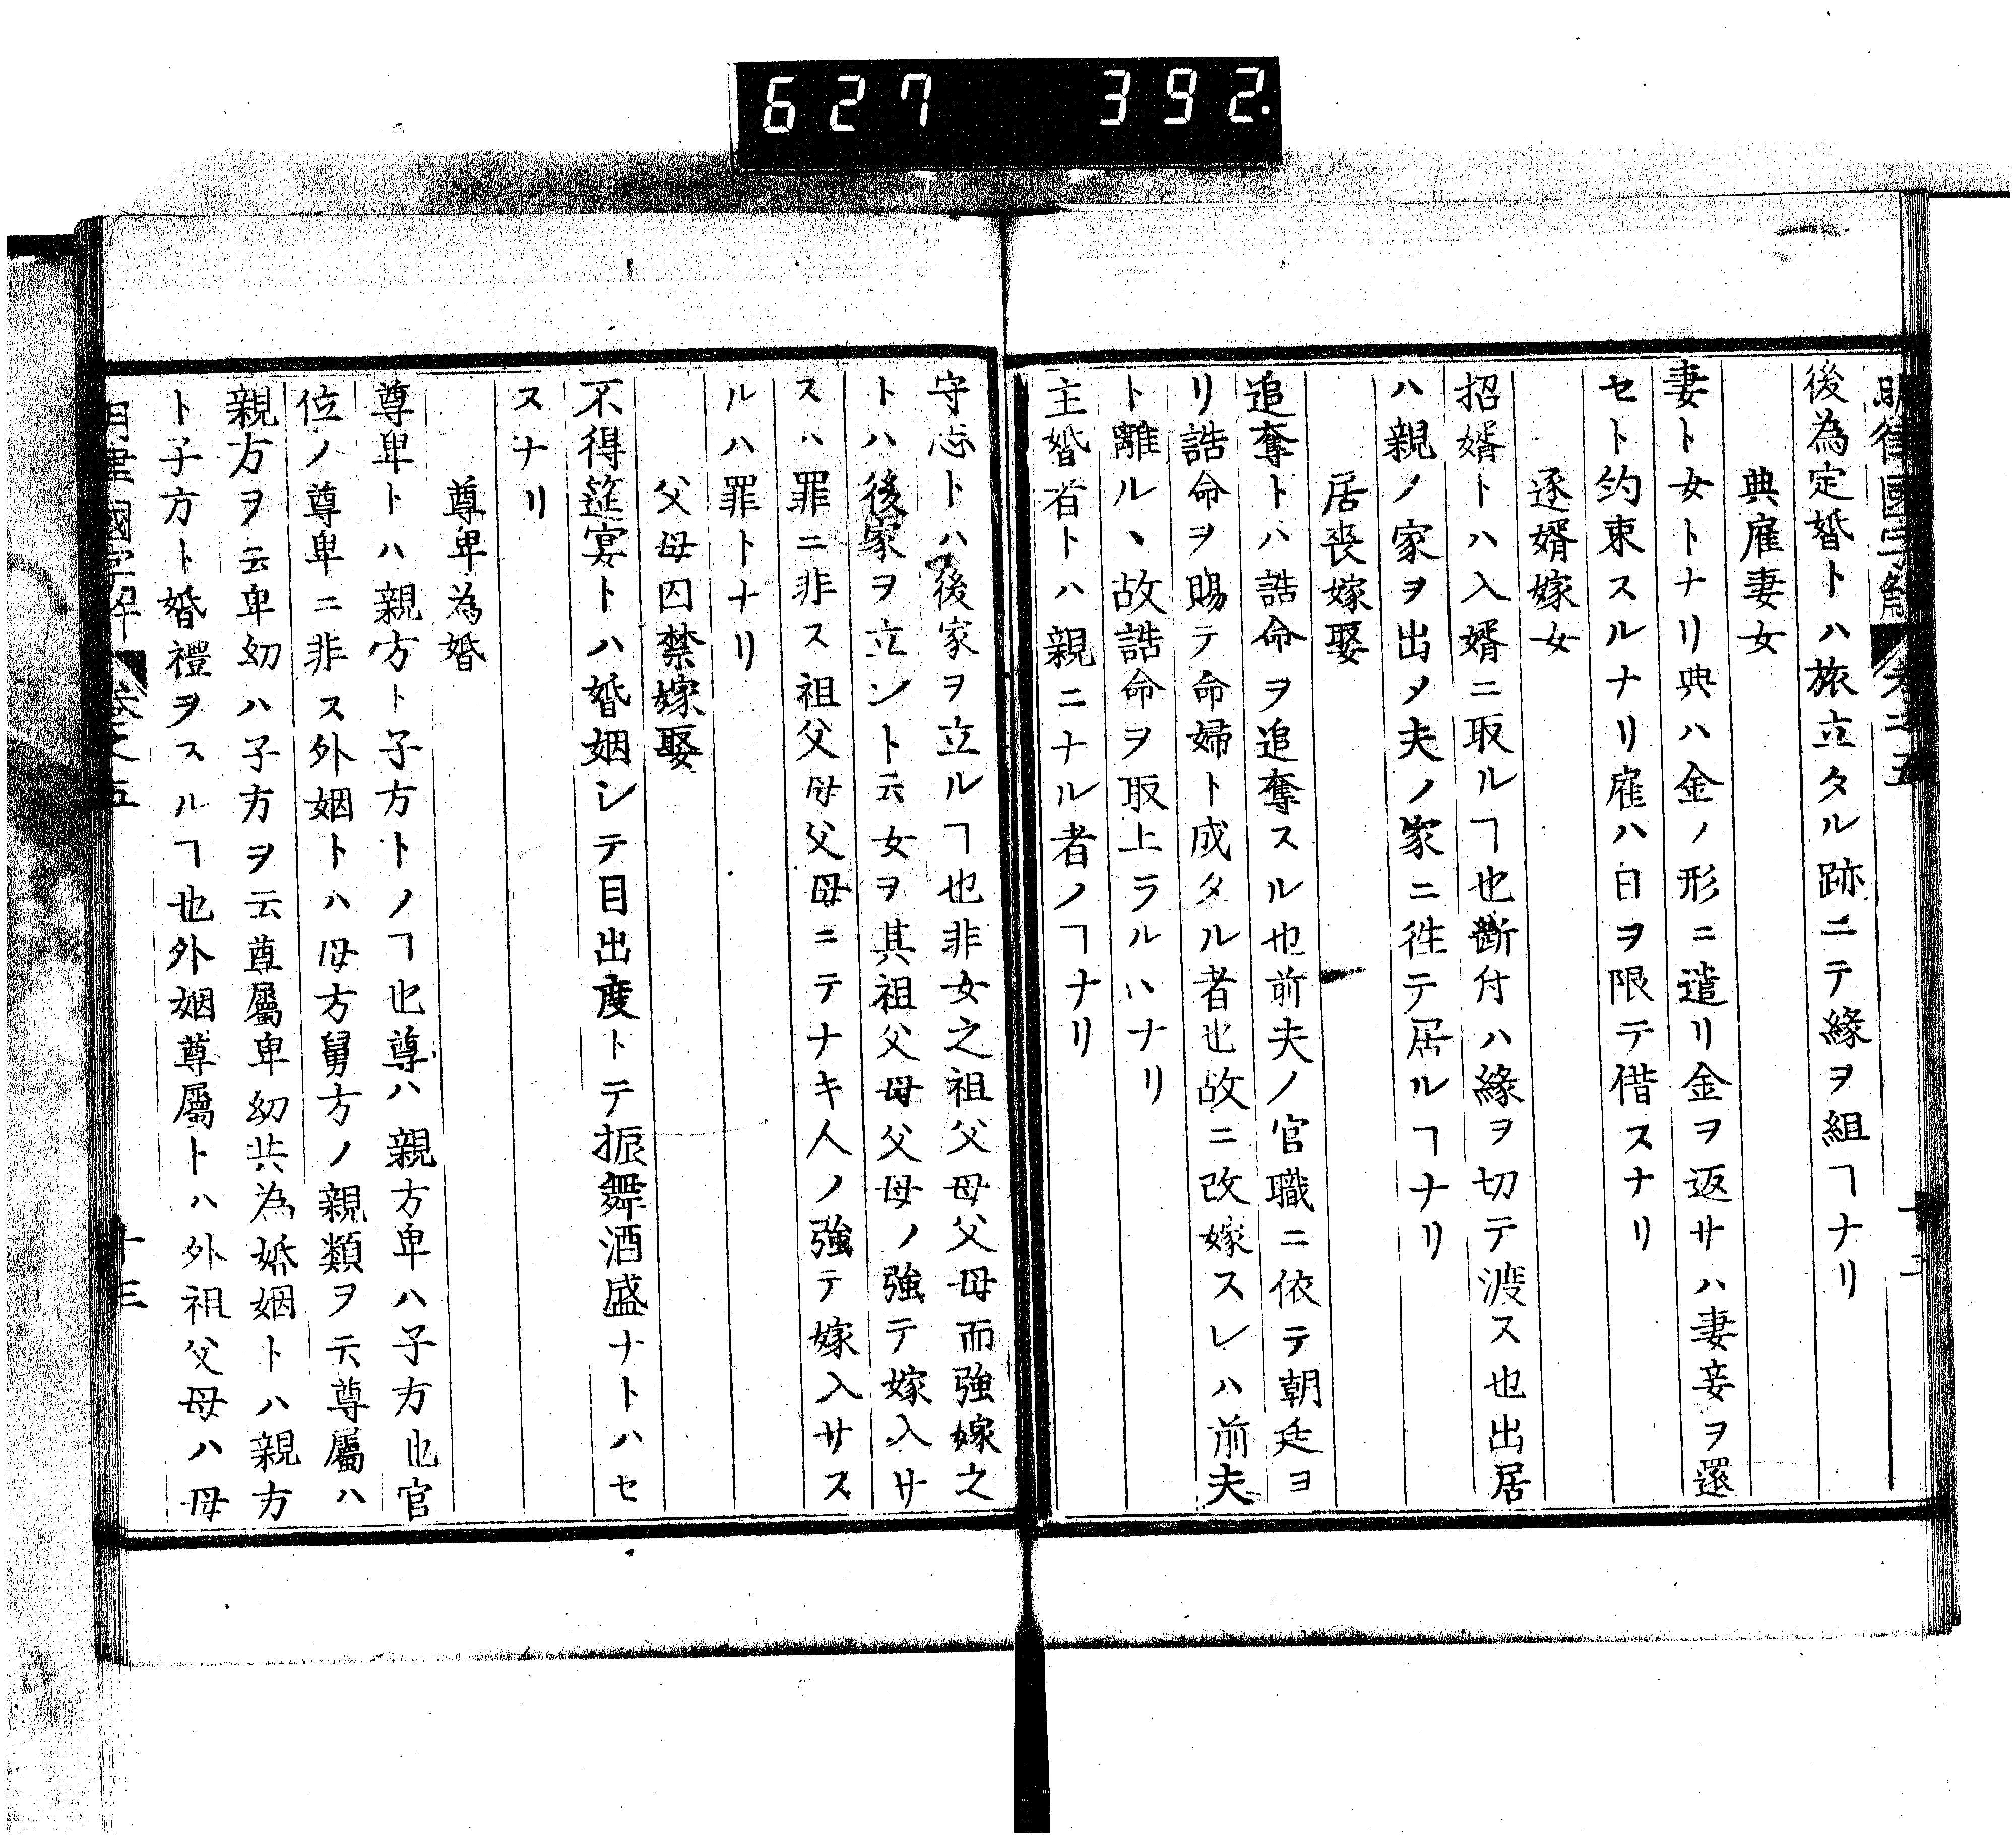 627 392
明律國字解 卷之五
後為定婚トハ旅立タル跡ニテ緣ヲ組ヿナリ
典雇妻女
妻ト女トナリ典ハ金ノ形ニ遣リ金ヲ返サハ妻妾ヲ還
セト約束スルナリ雇ハ日ヲ限テ借スナリ
逐婿嫁女
招婿トハ入婿ニ取ルヿ也斷付ハ緣ヲ切テ渡ス也出居
ハ親ノ家ヲ出メ夫ノ家ニ往テ居ルヿナリ
居喪嫁娶
追奪トハ誥命ヲ追奪スル也前夫ノ官職ニ依テ朝廷ヨ
リ誥命ヲ賜テ命婦ト成タル者也故ニ改嫁スレハ前夫
ト離ルヽ故誥命ヲ取上ラルハナリ
主婚者トハ親ニナル者ノヿナリ
守志トハ後家ヲ立ルヿ也非女之祖父母父母而強嫁之
トハ後家ヲ立ント云女ヲ其祖父母父母ノ強テ嫁入サ
スハ罪ニ非ス祖父母父母ニテナキ人ノ強テ嫁入サス
ルハ罪トナリ
父母囚禁嫁娶
不得筵宴トハ婚姻シテ目出度トテ振舞酒盛ナトハセ
スナリ
尊卑為婚
尊卑トハ親方ト子方トノヿ也尊ハ親方卑ハ子方也官
位ノ尊卑ニ非ス外姻トハ母方舅方ノ親類ヲ云尊屬ハ
親方ヲ云卑幼ハ子方ヲ云尊屬卑幼共為婚姻トハ親方
ト子方ト婚禮ヲスルヿ也外姻尊屬トハ外祖父母ハ母
明律國字解 卷之五 十三